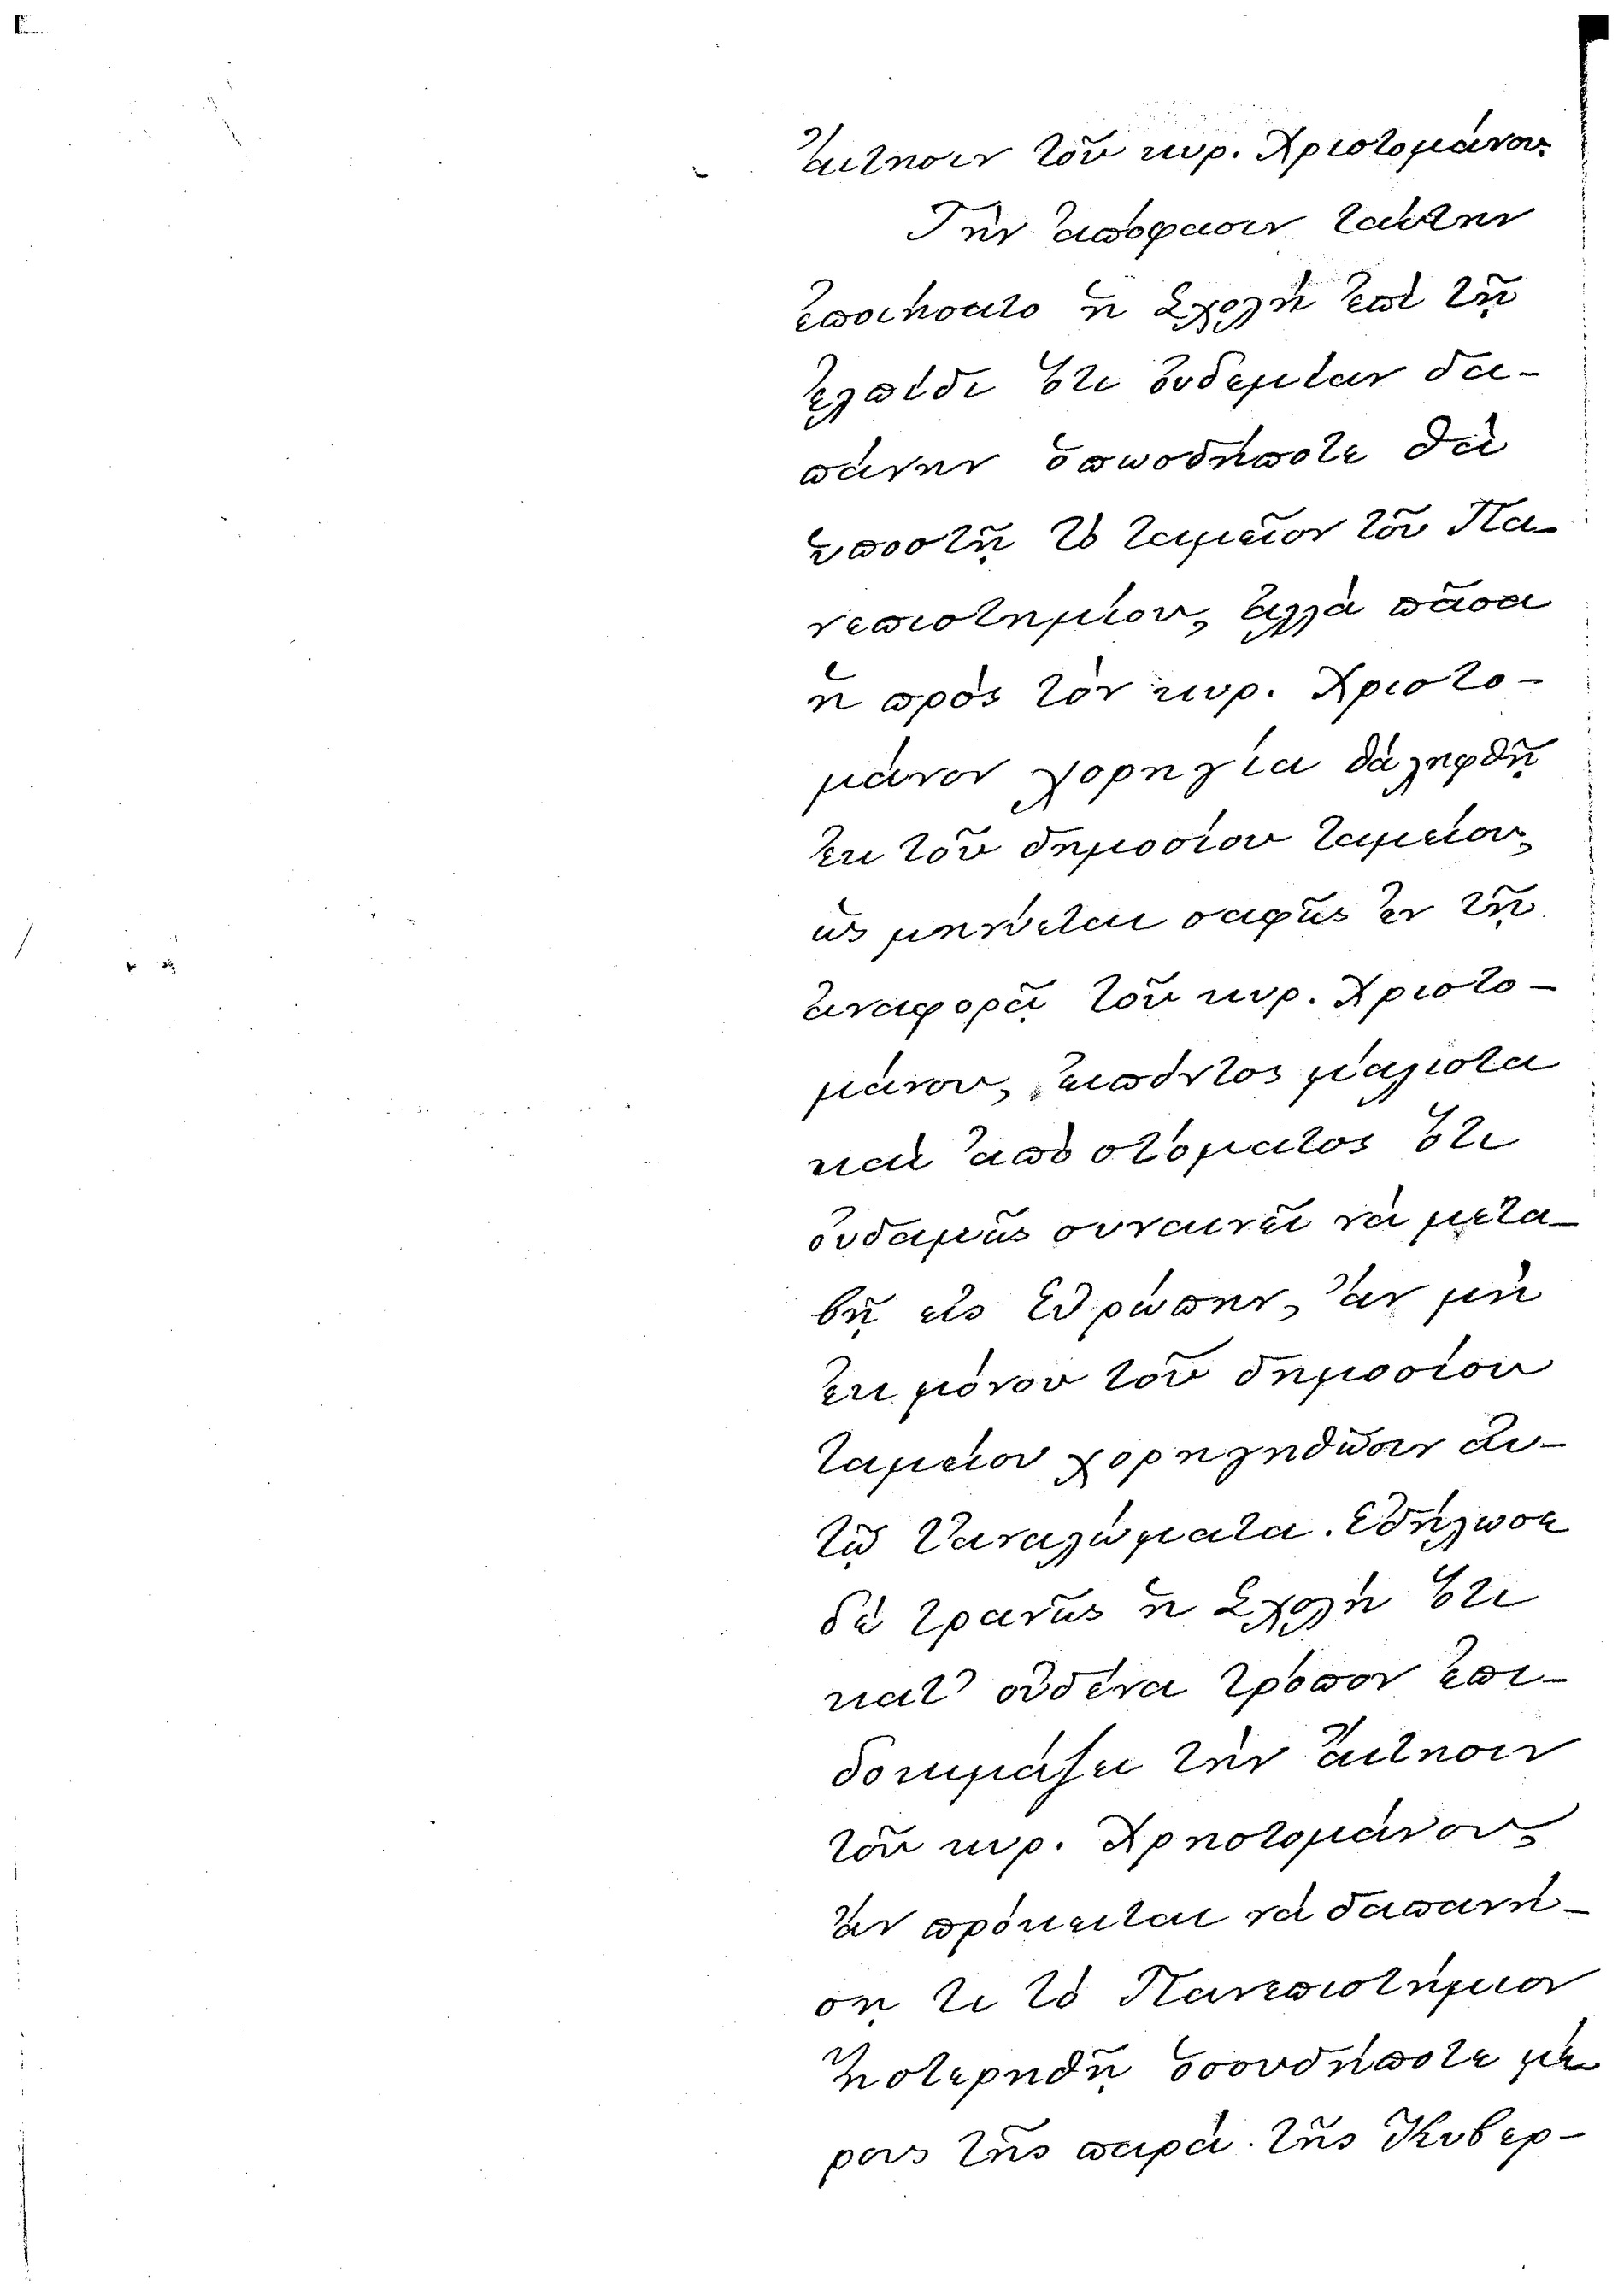 αἴτησιν τοῦ κυρ. Χριστομάνου.
Τὴν ἀπόφασιν ταύτην
ἐποιήσατο ἡ Σχολὴ ἐπὶ τῇ
ἐλπίδι ὅτι οὐδεμίαν δα-
πάνην ὁπωσδήποτε θὰ
ὑποστῇ τὸ ταμεῖον τοῦ Πα-
νεπιστημίου, ἀλλὰ πᾶσα
ἡ πρὸς τὸν κυρ. Χριστο-
μάνον χορηγία θὰ ληφθῇ
ἐκ τοῦ δημοσίου ταμείου,
ὡς μηνύεται σαφῶς ἐν τῇ
ἀναφορᾷ τοῦ κυρ. Χριστο-
μάνου, εἰπόντος μάλιστα
καὶ ἀπὸ στόματος ὅτι
οὐδαμῶς συναινεῖ νὰ μετα-
βῇ εἰς Εὐρώπην, ἂν μὴ
ἐκ μόνου τοῦ δημοσίου
ταμείου χορηγηθῶσιν αὐ-
τῷ τἀναλώματα. Ἐδήλωσε
δὲ τρανῶς ἡ Σχολὴ ὅτι
κατ' οὐδένα τρόπον ἐπι-
δοκιμάζει τὴν αἴτησιν
τοῦ κυρ. Χρηστομάνου,
ἂν πρόκειται νὰ δαπανή-
σῃ τι τὸ Πανεπιστήμιον
ἢ στερηθῇ ὁσουδήποτε μέ
ρους τῆς παρὰ τῆς Κυβερ-